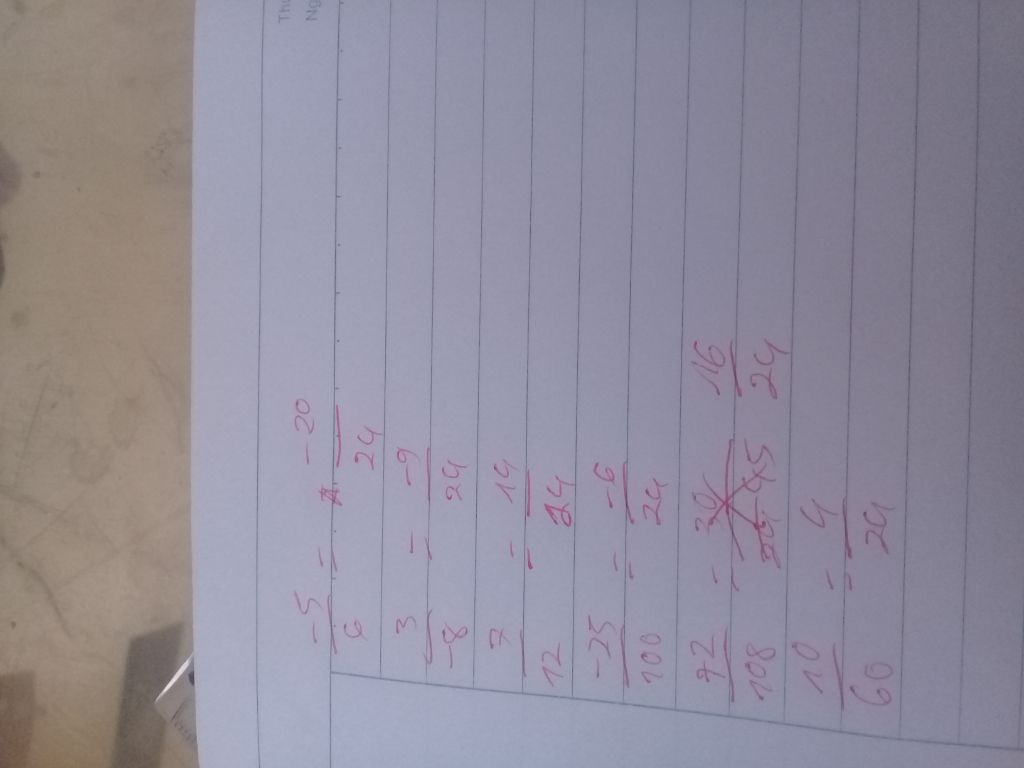 Thứ
Ng
-5/6 = -20/24
3/-8 = -9/24
7/12 = 14/24
-25/100 = -6/24
72/108 = 16/24
10/60 = 4/24